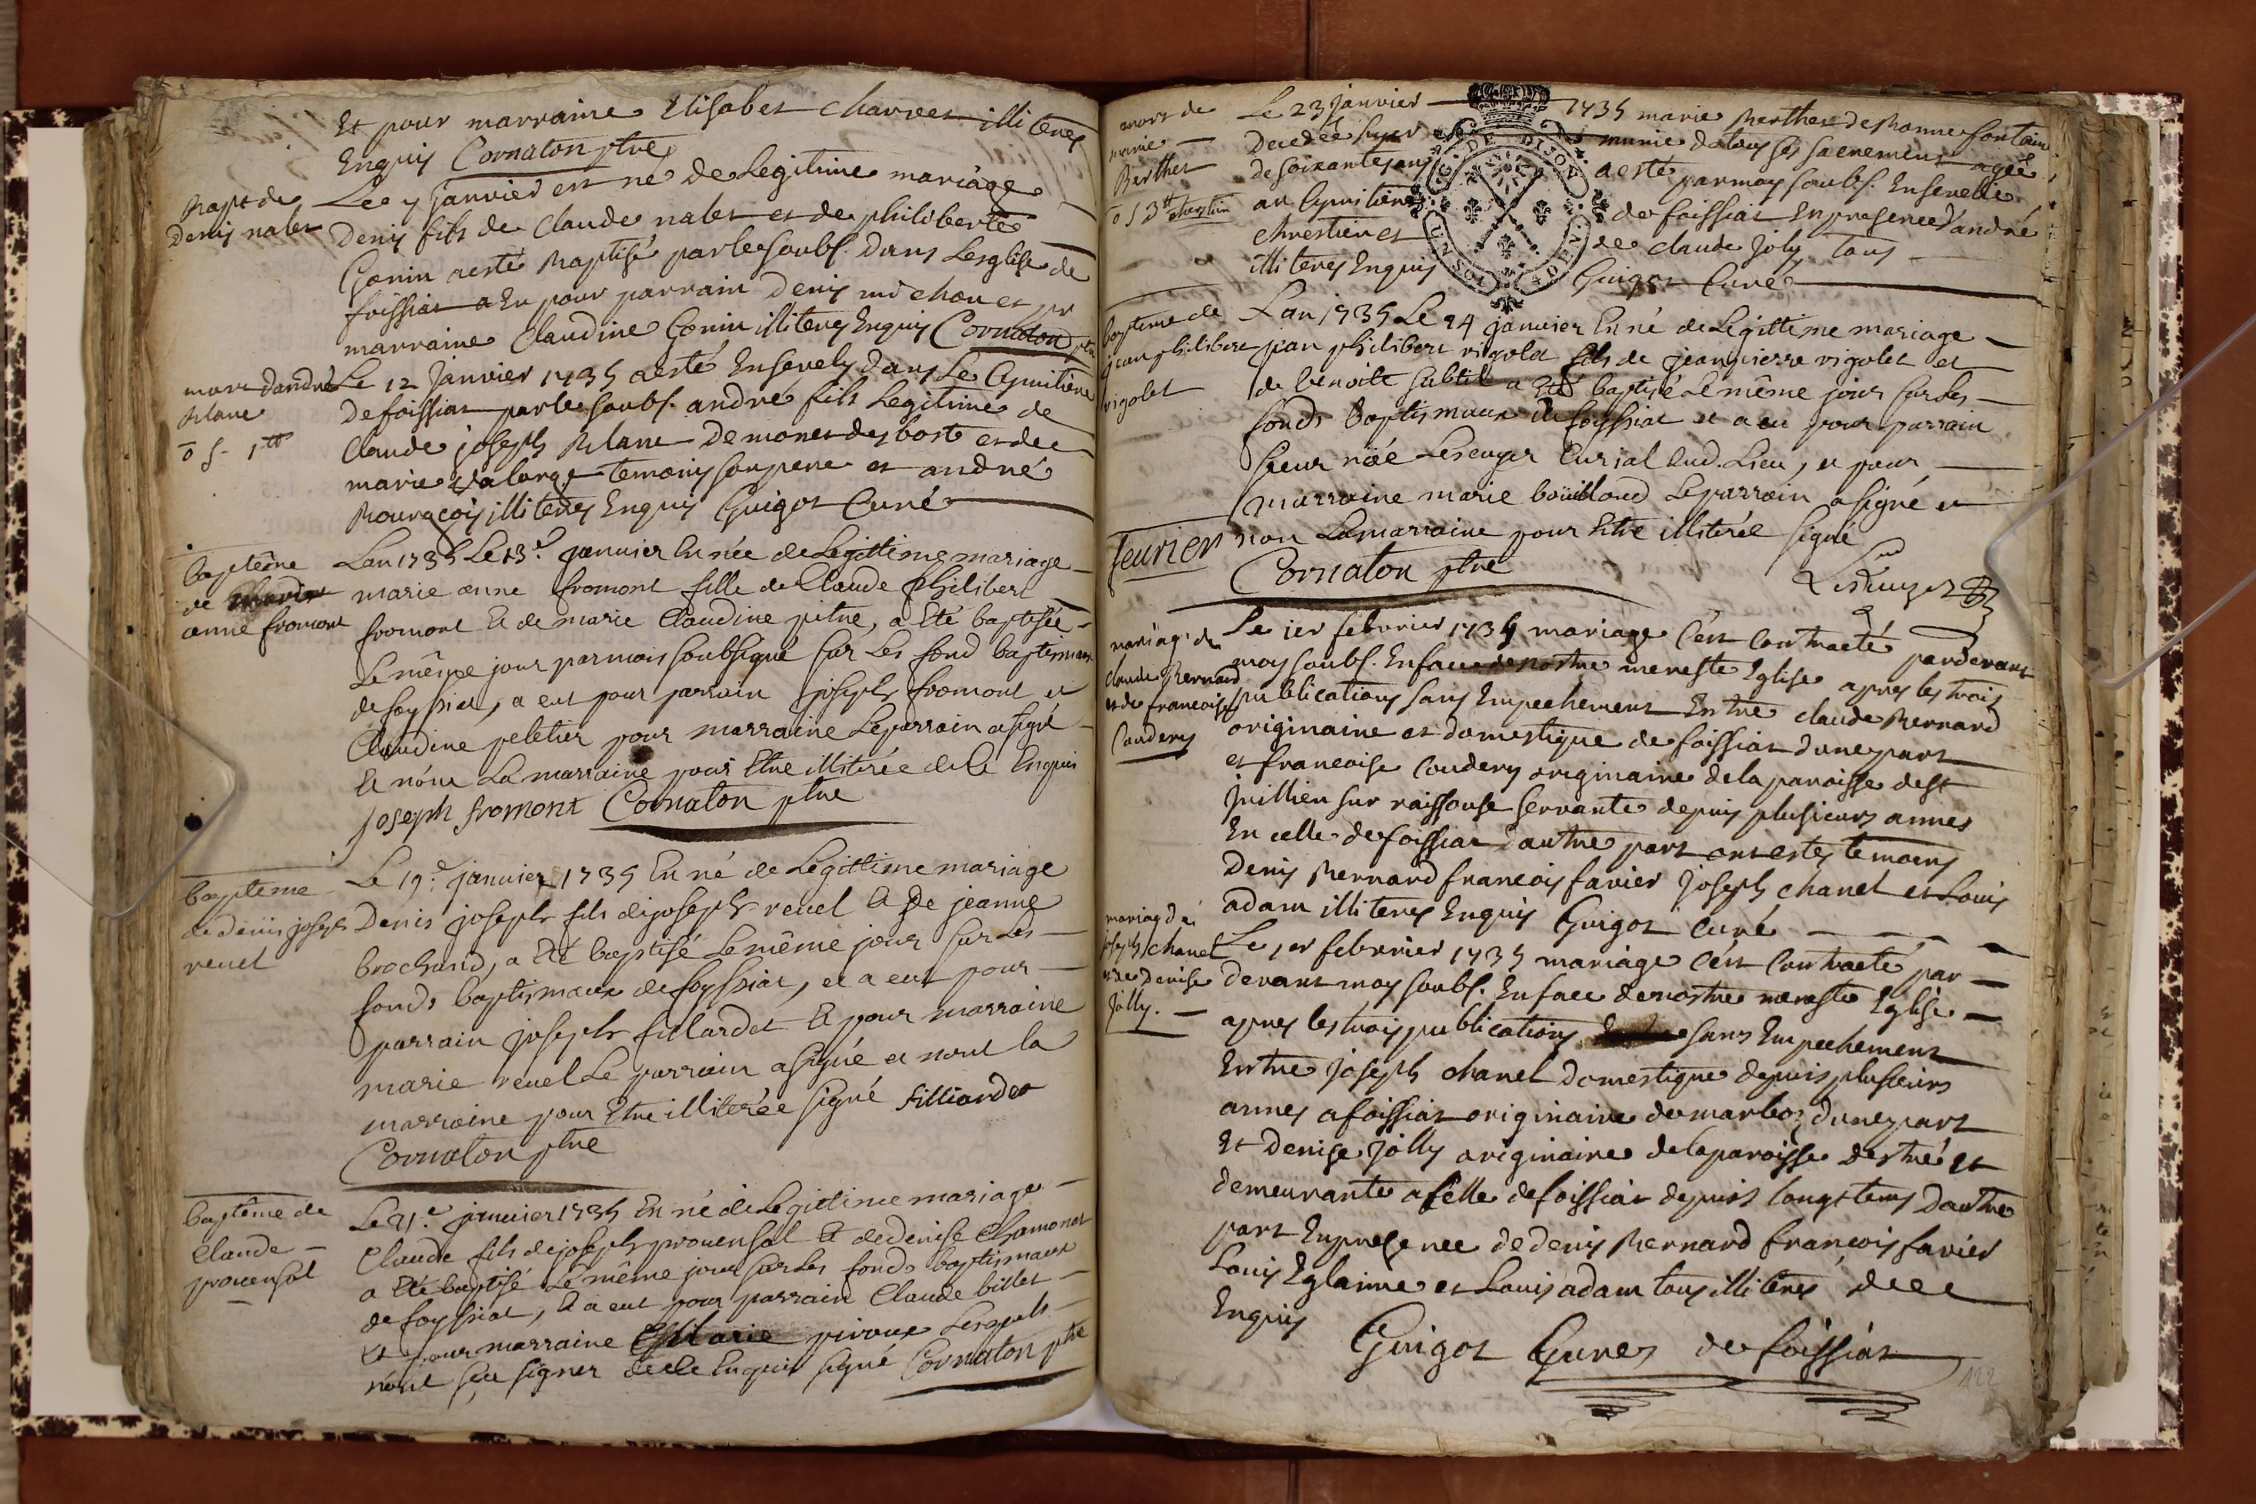 Et pour marraine Elisabet Charvet illiterés
Enquis Cornaton ptre
Bapt de
Denis nalet
Le 7 janvier est né de Legitime mariage
Denis fils de Claude nalet et de philiberte
Gonin aesté Baptisé par le soubs. dans Lesglise de
foissiat a Eu pour parrain Denis michon et pr
marraine Claudine Gonin illiterés Enquis Cornaton ptre
mort dandré
Blanc
Le 12 janvier 1735 aesté Ensevely dans Le Cymitiere
de foissiat par le soubs. andré fils Legitime de
Claude joseph Blanc de monet des bost et de
marie Valorge temoins son pere et andré
illiterés Enquis Guigot Curé
baptême
de marie
anne fromont
Lan 1735 Le 13e janvier Ennée de Legittime mariage
marie anne fromont fille de Claude philibert
fromont Et de marie Claudine pitre, a Eté baptisée
Le même jour par mois soubsigné sur Les fond baptismaux
de foyssiat, a eut pour parrain joseph fromont et
Claudine peletier pour marraine Le parrain a signé
Et non La marraine pour Etre illiterée de Ce Enquis
joseph fromont Cornaton ptre
baptême
de denis joseph
revel
Le 19e janvier 1735 En né de Legittime mariage
Denis joseph fils de joseph revel Et De jeanne
brochand, a Eté baptisé Le même jour sur Les
fonds baptismaux de foyssiat, et a eut pour
parrain joseph fillardet Et pour marraine
marie revel Le parrain a signé et nont la
marraine pour Etre illiterée signé filliardet
Cornaton ptre
baptême de
Claude
provensal
Le 21e janvier 1735 En né de Legittime mariage
Claude fils de joseph provensal Et de denise Chamonat
a Eté baptisé Le même jour sur Les fonds baptismaux
de foyssiat, Et a eut pour parrain Claude billet
Et pour marraine piroux Lesquels
n'ont sçu signer de Ce Enquis signé Cornaton ptre
mort de
marie
Berthet
Le 23 janvier 1735 marie Berthet de Bonne fontaine
Decedée hyer munie de tous ses sacrements agée
de soixante ans aesté par moy soubs. Ensevelie
au Cymitiere de foissiat En presence d'andré
chrestien et de claude joly tous
illiterés Enquis Guigot Curé
G. DE DIJON
baptême de
jean philibert
rigolet
L'an 1735 Le 24 janvier En né de Legittime mariage
jean philibert rigolet fils de jean pierre rigolet et
de benoite subtil a Eté baptisé Le même jour sur Les
fonds baptismaux de foyssiat et a eu pour parrain
sieur noé Lescuyer Curial dud. Lieu, et pour
marraine marie boüilloud Le parrain a signé et
non La marraine pour Etre illiterée signé
Cornaton ptre
Lescuyer
feurier
mariage de
claude Bernard
et de francoise
Coudery
Le 1er febvrier 1735 mariage C'est Contracté pardevant
moy soubs. En face de nostre mere ste Eglise apres les trois
publications sans Empechement Entre claude Bernard
originaire et domestique de foissiat dune part
et francoise Coudery originaire de la paroisse de st
juillien sur raissouse servante depuis plusieurs annes
En celle de foissiat dautre part ont estes temoins
Denis Bernard francois favier joseph chanel et Louis
adam illiterés Enquis Guigot Curé
mariag de
joseph chanel
et de denise
Jolly.
Le 1er febvrier 1735 mariage C'est Contracté par
devant moy soubs. En face de nostre mere ste Eglise
apres les trois publications sans Empechement
Entre joseph chanel domestique depuis plusieurs
annes a foissiat originaire de marboz dune part
Et Denise Jolly originaire de la paroisse destré et
demeurante a Celle de foissiat depuis longs tems Dautre
part En presence de denis Bernard francois favier
Louis Eglaime et Louis adam tous illiterés de Ce
Enquis
Guigot Cures de foissiat
122